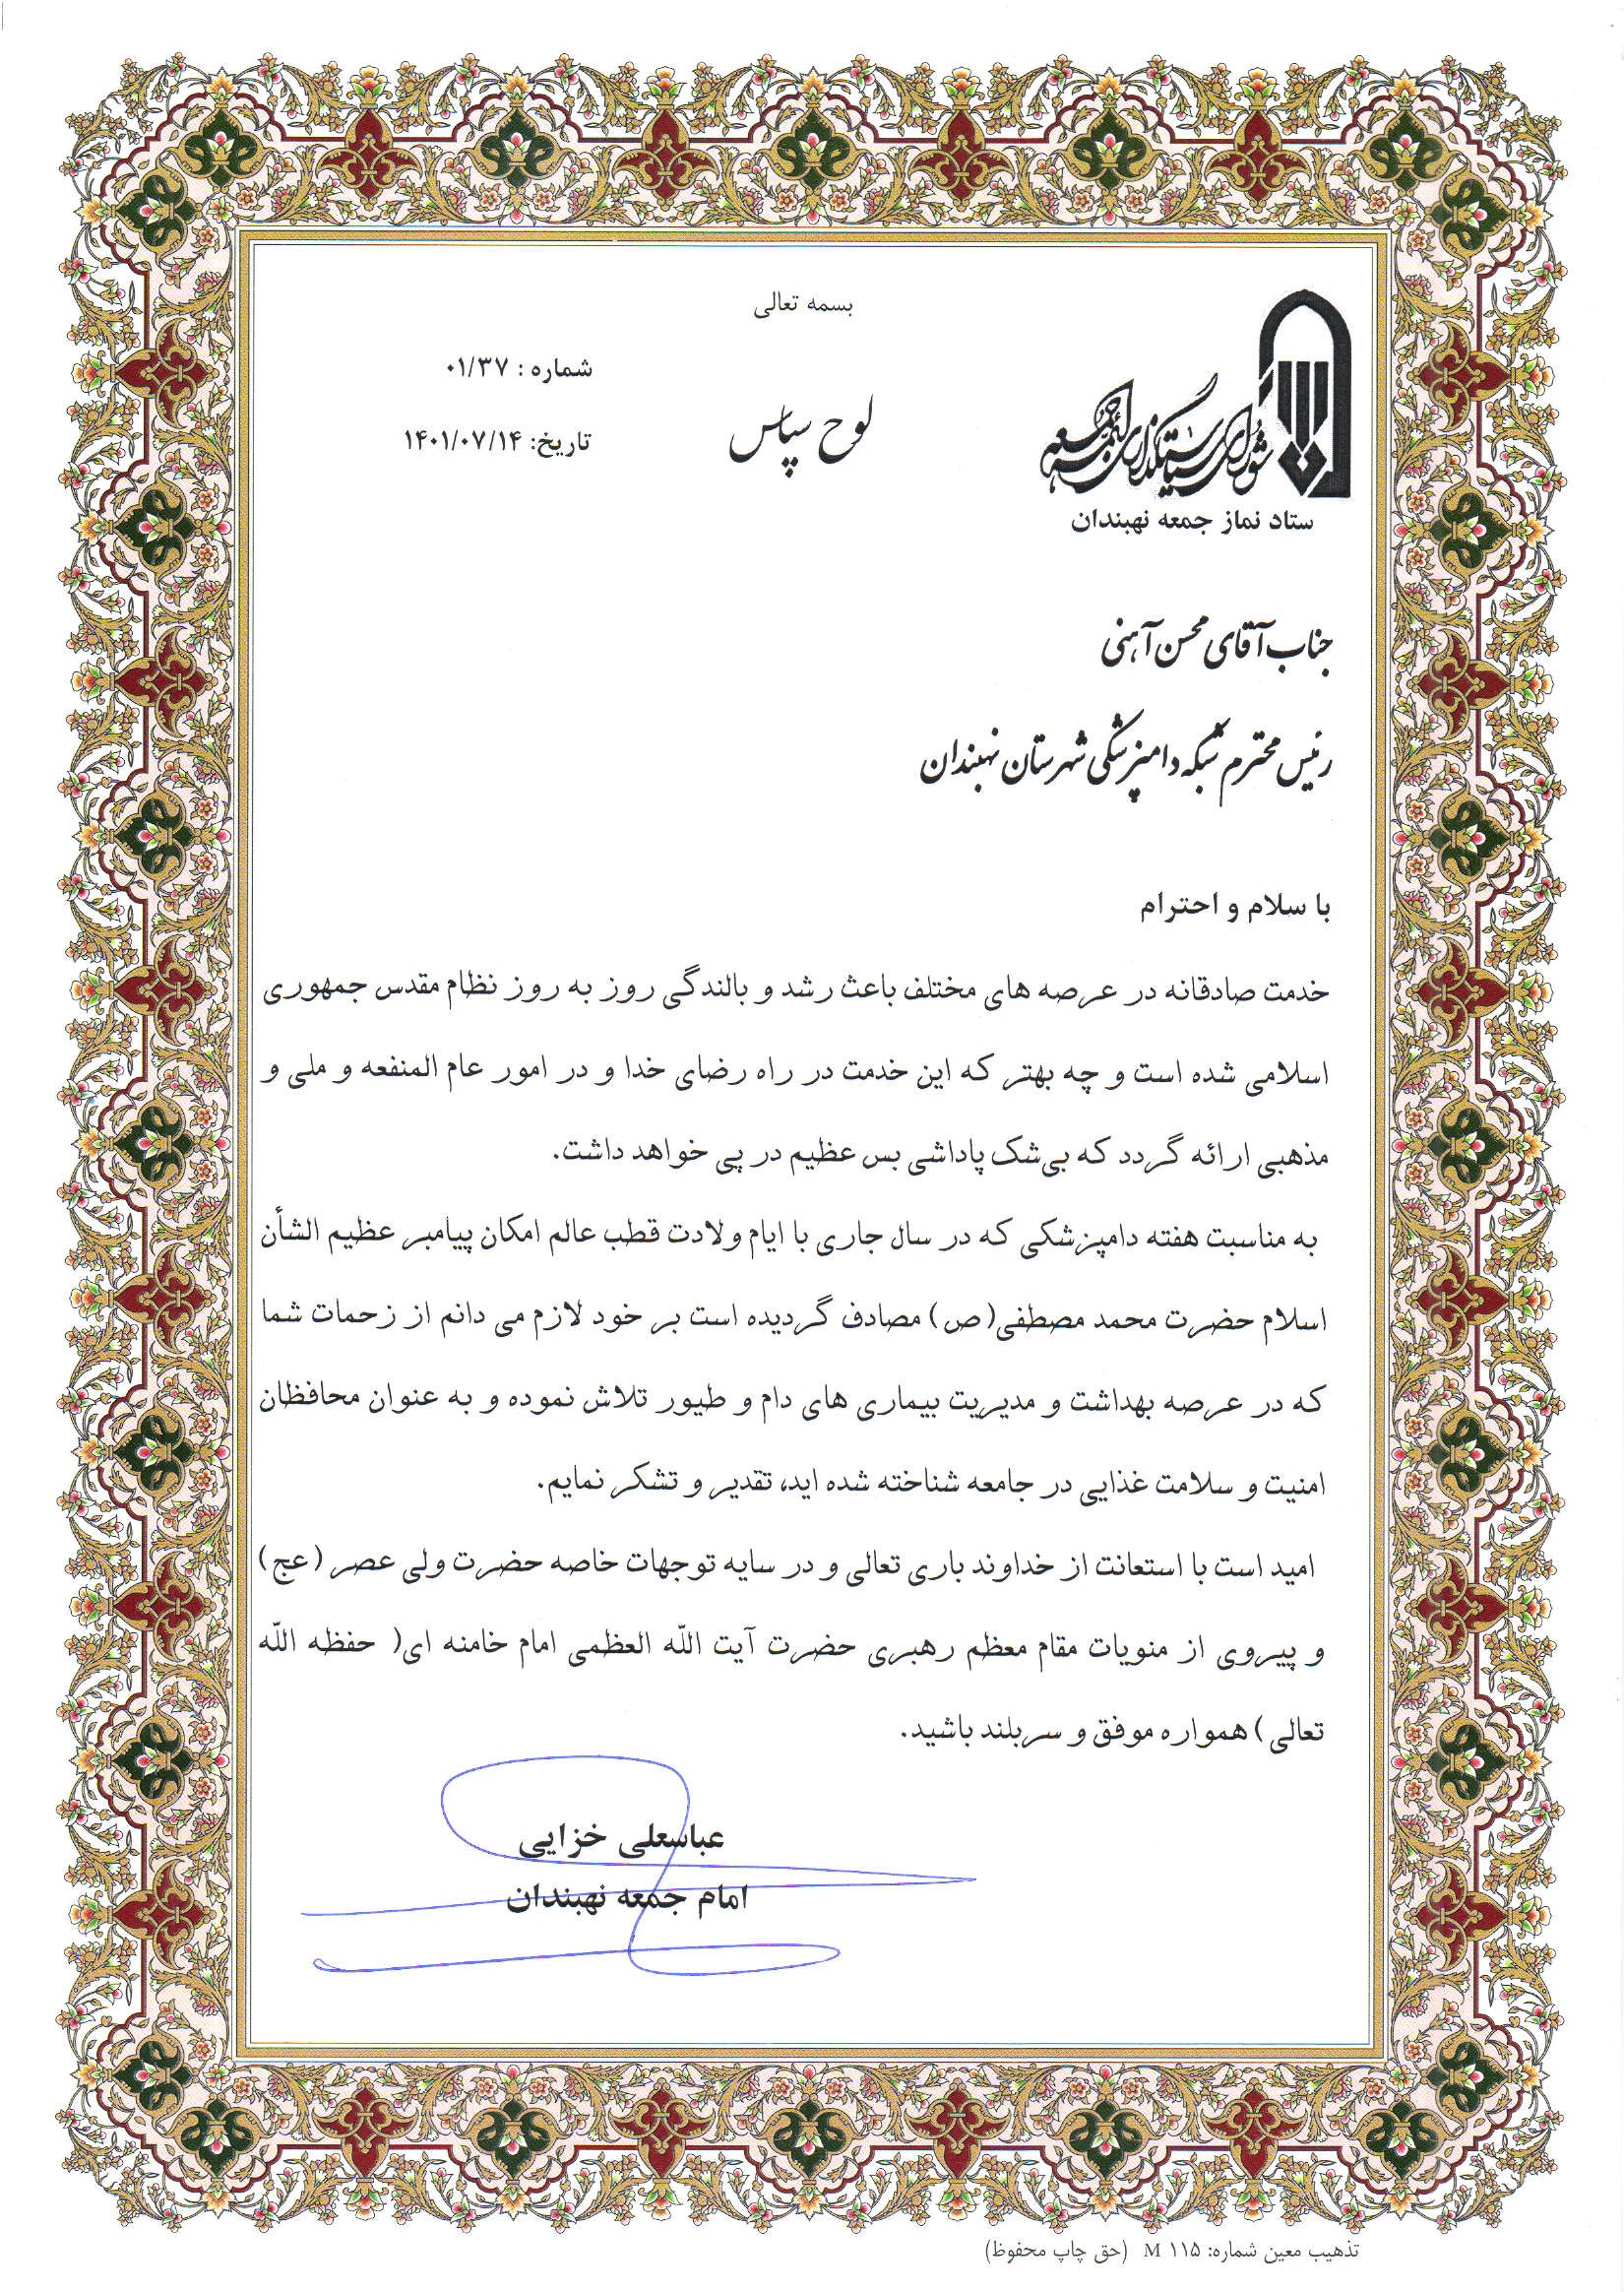 بسمه تعالی
شماره : ۰۱/۳۷
تاریخ: ۱۴۰۱/۰۷/۱۴
لوح سپاس
شورای سیاستگذاری ائمه جمعه
ستاد نماز جمعه نهبندان
جناب آقای محسن آهنی
رئیس محترم شبکه دامپزشکی شهرستان نهبندان
با سلام و احترام
خدمت صادقانه در عرصه های مختلف باعث رشد و بالندگی روز به روز نظام مقدس جمهوری
اسلامی شده است و چه بهتر که این خدمت در راه رضای خدا و در امور عام المنفعه و ملی و
مذهبی ارائه گردد که بی‌شک پاداشی بس عظیم در پی خواهد داشت.
به مناسبت هفته دامپزشکی که در سال جاری با ایام ولادت قطب عالم امکان پیامبر عظیم الشأن
اسلام حضرت محمد مصطفی(ص) مصادف گردیده است بر خود لازم می دانم از زحمات شما
که در عرصه بهداشت و مدیریت بیماری های دام و طیور تلاش نموده و به عنوان محافظان
امنیت و سلامت غذایی در جامعه شناخته شده اید، تقدیر و تشکر نمایم.
امید است با استعانت از خداوند باری تعالی و در سایه توجهات خاصه حضرت ولی عصر (عج)
و پیروی از منویات مقام معظم رهبری حضرت آیت الله العظمی امام خامنه ای( حفظه الله
تعالی) همواره موفق و سربلند باشید.
عباسعلی خزایی
امام جمعه نهبندان
تذهیب معین شماره: M ۱۱۵ (حق چاپ محفوظ)